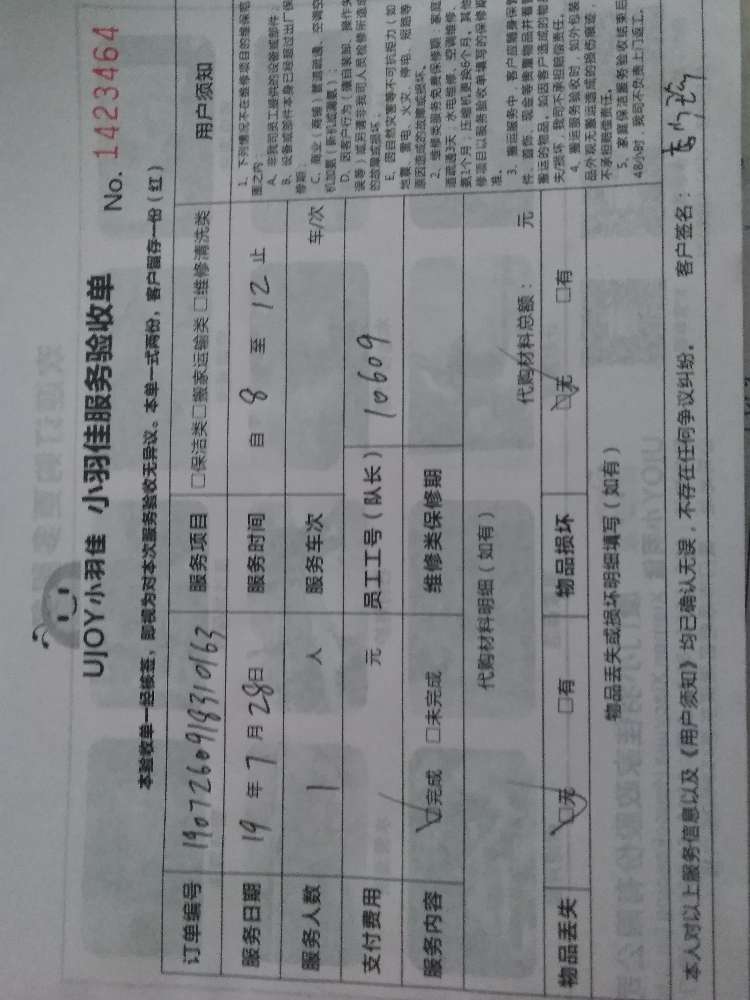 UJOY小羽佳 小羽佳服务验收单
No. 1423464
本验收单一经核签，即视为对本次服务验收无异议。本单一式两份，客户留存一份（红）
订单编号 190726091831 0163 服务项目 □保洁类□搬家运输类 □维修清洗类
服务日期 19 年 7 月 28 日 服务时间 自 8 至 12 止
服务人数 1 人 服务车次 车/次
支付费用 元 员工工号（队长） 10609
服务内容 ☑完成 □未完成 维修类保修期
代购材料明细（如有）
代购材料总额： 元
物品丢失 ☑无 □有 物品损坏 ☑无 □有
物品丢失或损坏明细填写（如有）
用户须知
1、下列情况不在维修项目的维保范
围之内：
A、非我司员工提供的设备或部件；
B、设备或部件本身已经超过出厂保
修期；
C、商业（商铺）管道疏通、空调空
机加氨（新机或漏氨）；
D、因客户行为（擅自装卸、操作失
误等）或另请非我司人员检修所造成
的故障或损坏；
E、因自然灾害等不可抗拒力（如
地震、雷电、火灾、停电、短路等
原因造成的故障或损坏。
2、维修类服务免费保修期：家庭
道疏通3天；水电维修、空调维修、
氨1个月；压缩机更换6个月，其他
修项目以服务验收单填写的保修期
准。
3、搬运服务中，客户应随身保管
件、首饰、现金等贵重物品并看管
搬运的物品，如因客户造成的物品
失/损坏，我司不承担赔偿责任。
4、搬运服务验收时，如外包装
品外观无搬运造成的损伤痕迹，
不承担赔偿责任。
5、家庭保洁服务验收结束后
48小时，我司不负责上门返工。
本人对以上服务信息以及《用户须知》均已确认无误，不存在任何争议纠纷。 客户签名：